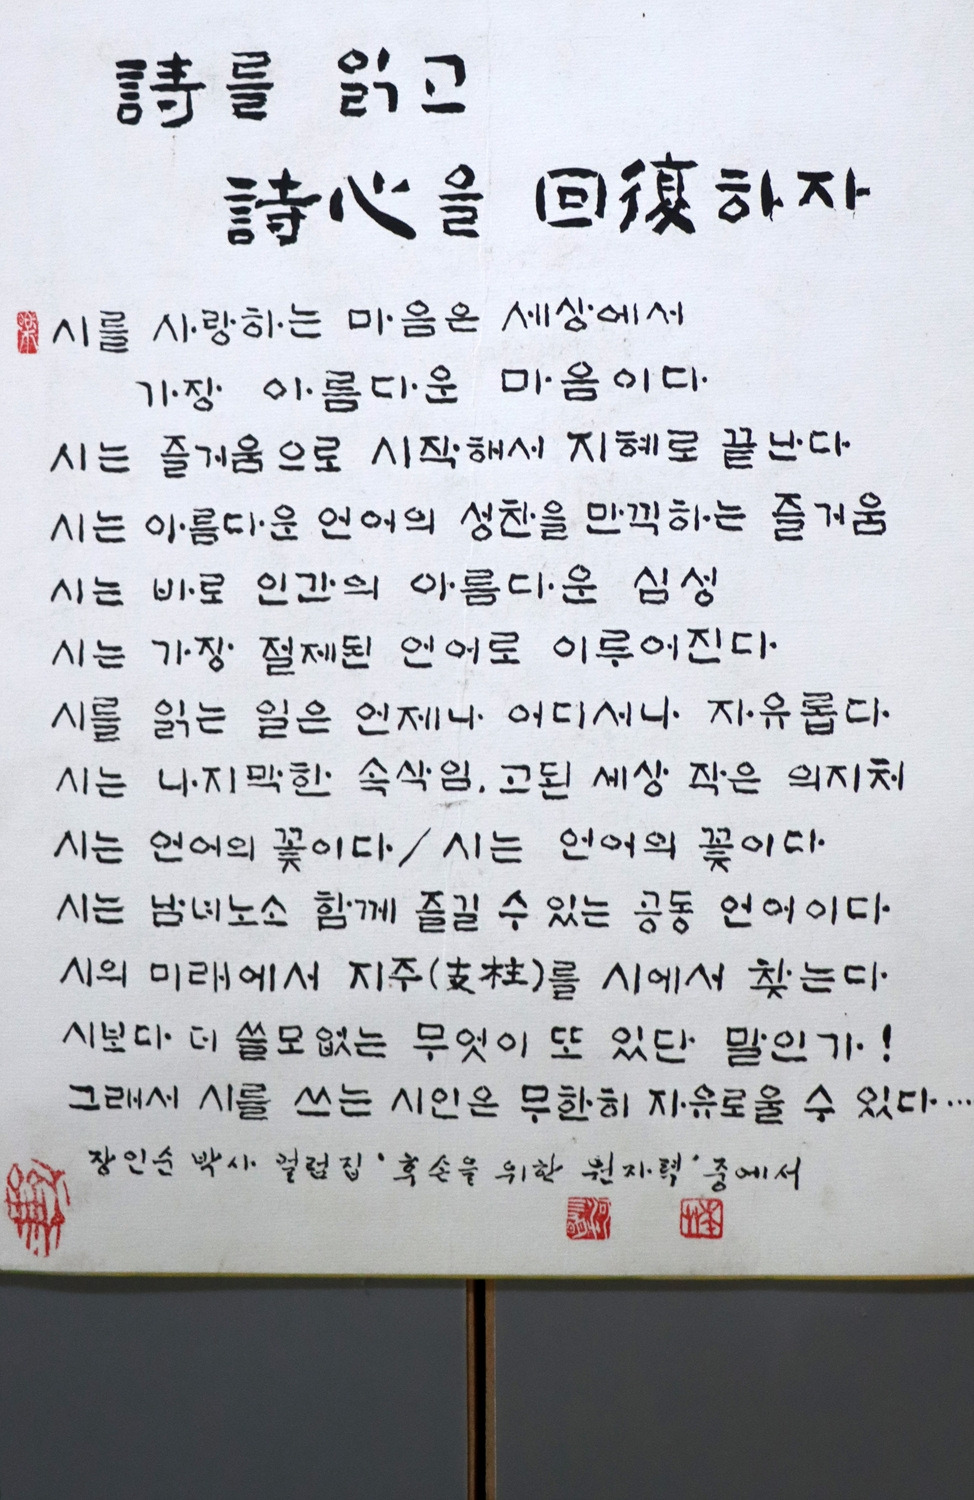 詩를 읽고
詩心을 回復하자
시를 사랑하는 마음은 세상에서
가장 아름다운 마음이다
시는 즐거움으로 시작해서 지혜로 끝난다
시는 아름다운 언어의 성찬을 만끽하는 즐거움
시는 바로 인간의 아름다운 심성
시는 가장 절제된 언어로 이루어진다
시를 읽는 일은 언제나 어디서나 자유롭다
시는 나지막한 속삭임. 고된 세상 작은 의지처
시는 언어의 꽃이다/시는 언어의 꽃이다
시는 남녀노소 함께 즐길 수 있는 공동 언어이다
시의 미래에서 지주(支柱)를 시에서 찾는다
시보다 더 쓸모없는 무엇이 또 있단 말인가!
그래서 시를 쓰는 시인은 무한히 자유로울 수 있다…
장인순 박사 컬럼집 '후손을 위한 원자력' 중에서